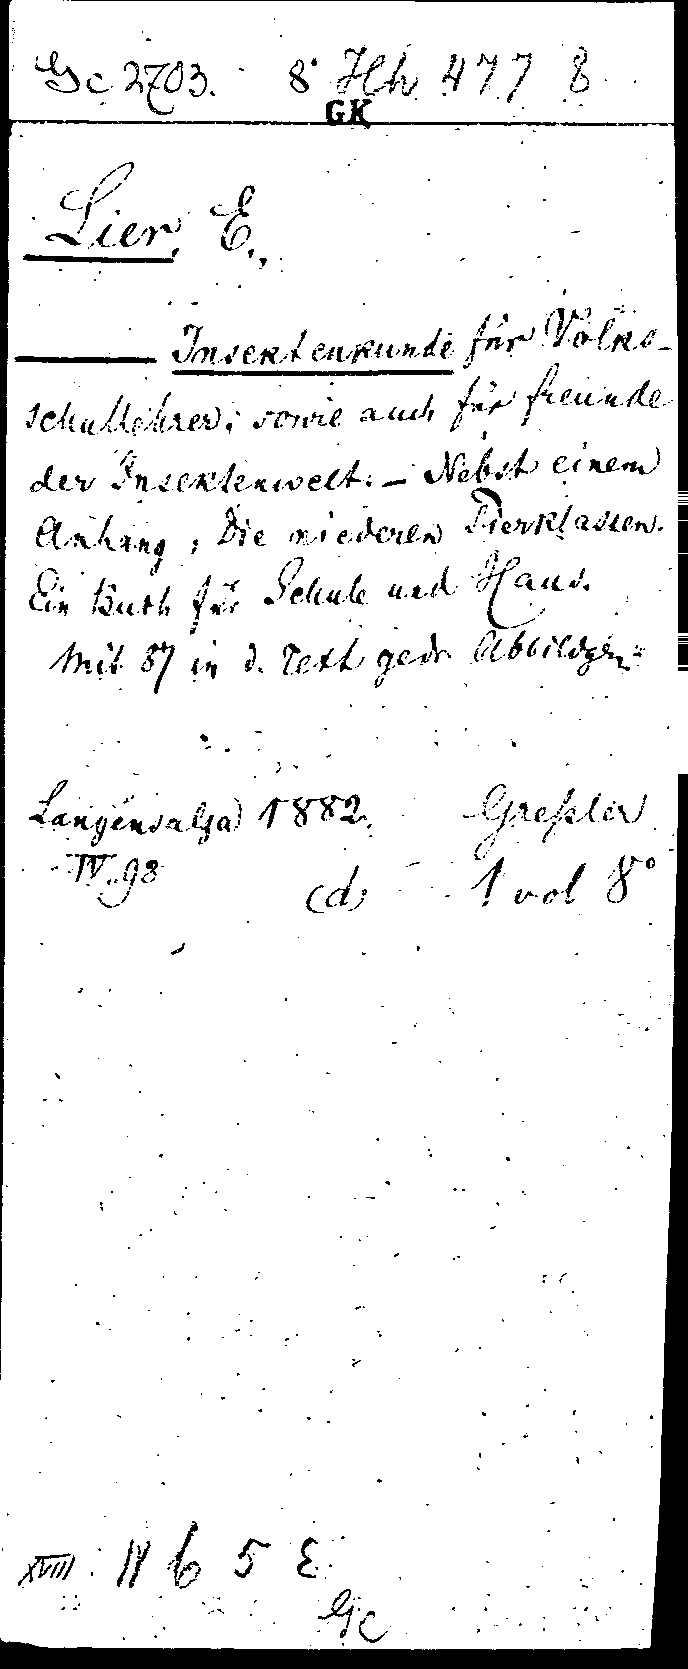 Gc 2703. 8° Hh 477 8
GK
Lier, E.,
Insektenkunde für Volks-
schullehrer, sowie auch für Freunde
der Insektenwelt. - Nebst einem
Anhang, Die niederen Tierklassen.
Ein Buch für Schule und Haus.
Mit 87 in d. Text gedr. Abbildgen.
Langensalza 1882. Greßler
IV. 98 (d) 1 vol 8°
XVIII. 18 6 5 ε
Gc